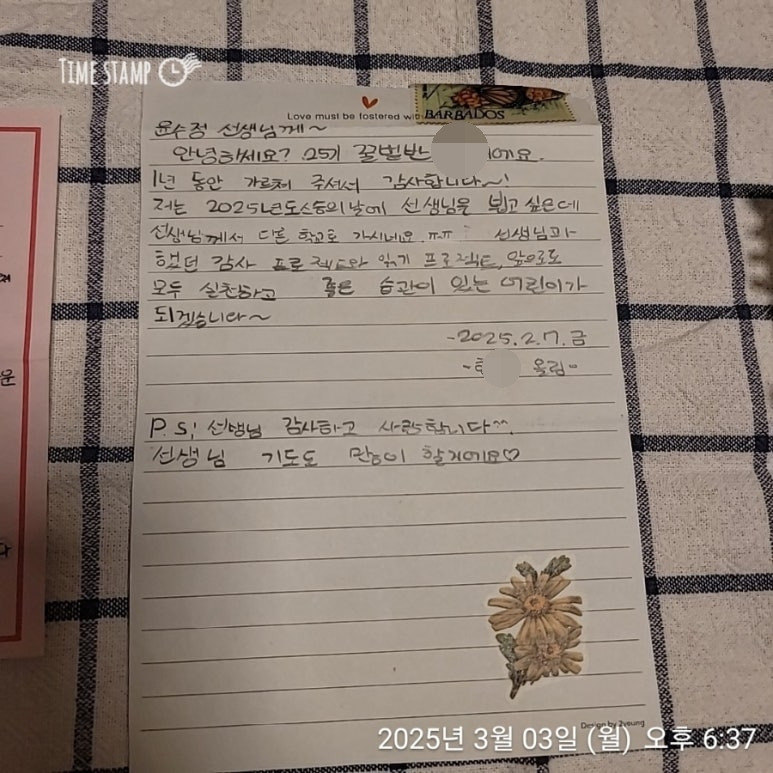 TIME STAMP
Love must be fostered with
BARBADOS
윤수정 선생님께~
안녕하세요? 25기 꿀벌반 이에요.
1년 동안 가르쳐 주셔서 감사합니다~!
저는 2025년도 스승의 날에 선생님을 뵙고 싶은데
선생님께서 다른 학교로 가시네요. ㅠㅠ 선생님과
했던 감사 프로젝트와 읽기 프로젝트, 앞으로도
모두 실천하고 좋은 습관이 있는 어린이가
되겠습니다~
-2025.2.7.금
올림-
P.S; 선생님 감사하고 사랑합니다^^
선생님 기도도 많이 할게에요♡
Design by 2young
2025년 3월 03일 (월) 오후 6:37